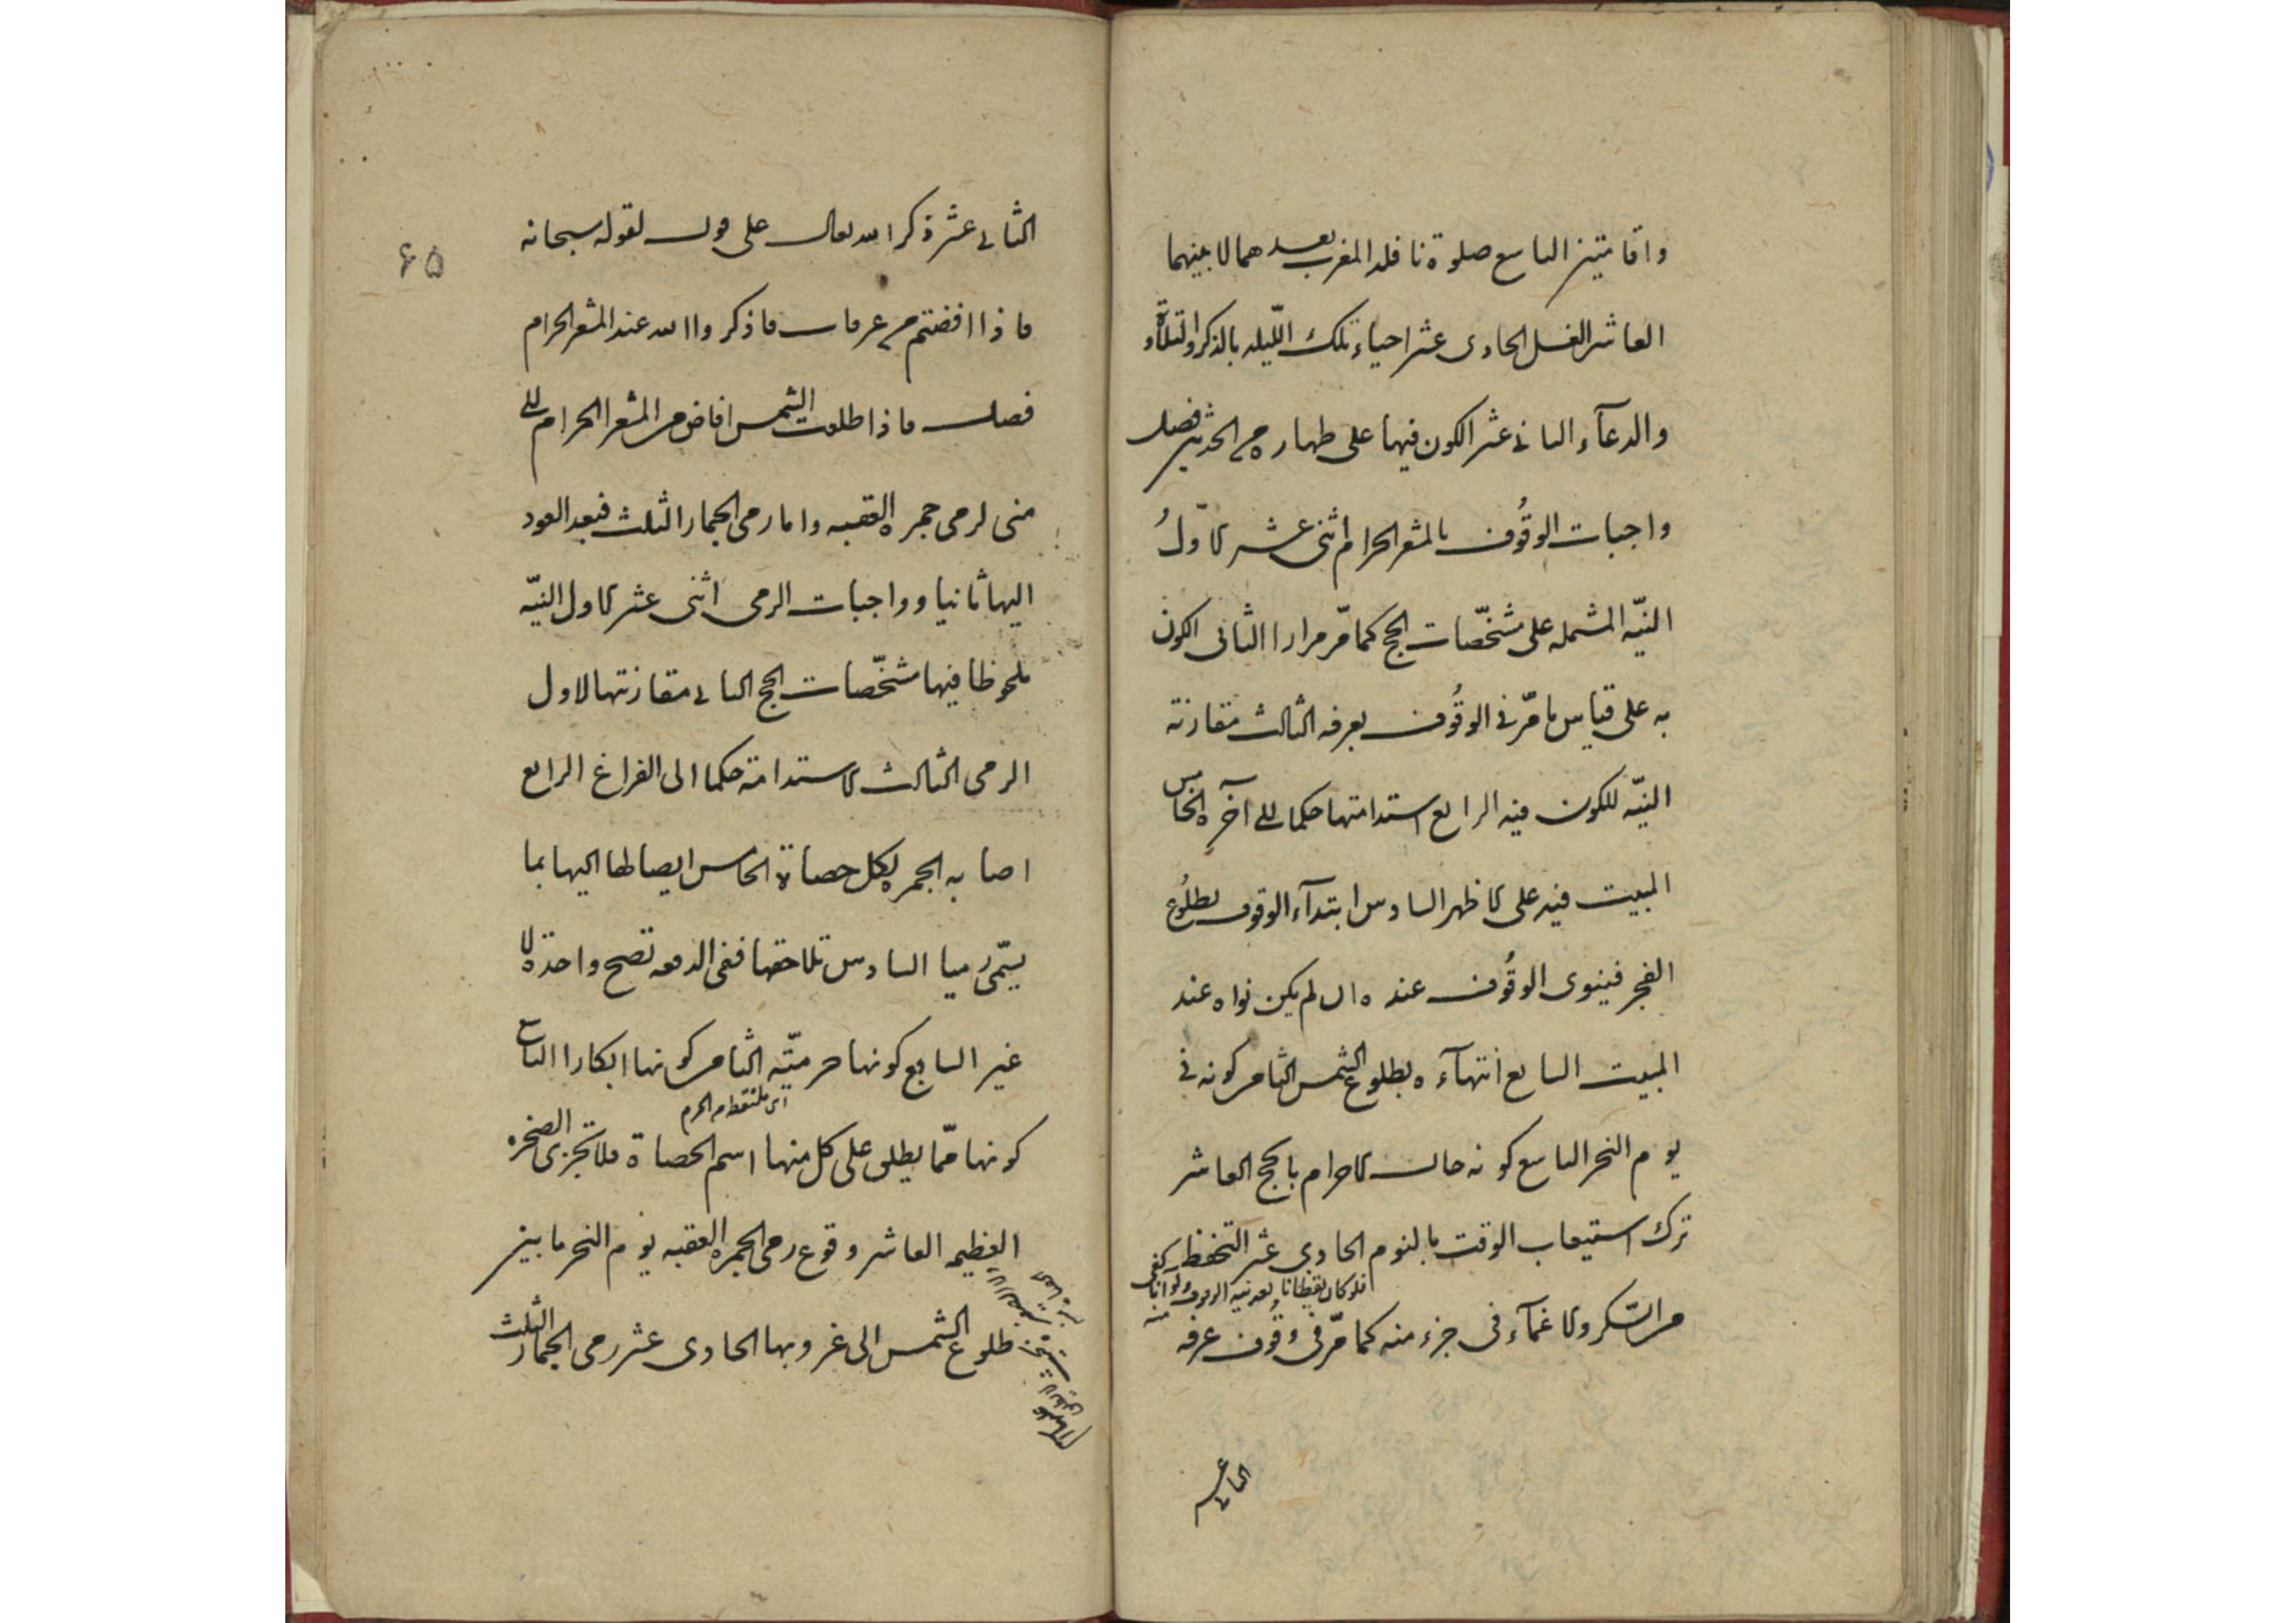 واقامتين التاسع صلوة نافلة المغرب بعدهما لا بينهما
العاشر الغسل الحادى عشر احياء تلك الليلة بالذكر والتلاوة
والدعآء الثانى عشر الكون فيها على طهارة من الحدثين فصل
واجبات الوقُوف بالمشعر الحرام اثنى عشر الاوّلُ
النيّه المشتمله على مشخّصات الحج كما مرّ مرارا الثانى الكون
به على قياس ما مرّ فى الوقُوف بعرفه الثالث مقارنة
النيّه للكون فيه الرابع استدامتها حكما الى آخره الخامس
المبيت فيه على الاظهر السادس ابتدآء الوقوف بطلُوع
الفجر فينوى الوقُوف عنده ان لم يكن نواه عند
المبيت السابع انتهآءه بطلوع الشمس الثامن كونه فى
يوم النحر التاسع كونه حال الاحرام بالحج العاشر
ترك استيعاب الوقت بالنوم الحادى عشر التحفظ
فلو كان يقظانا بعد نية الوقوف ولو آنا كفى
منه
من السّكر والاغمآء فى جزء منه كما مرّ فى وقُوف عرفه
الثانى عشر
٦٥
الثانى عشر ذكر الله تعالى على قول لقوله سبحانه
فاذا افضتم من عرفات فاذكروا الله عند المشعر الحرام
فصل فاذا طلعت الشمس افاض من المشعر الحرام الى
منى لرمى جمرة العقبه واما رمى الجمار الثلث فبعد العود
اليها ثانيا وواجبات الرمى اثنى عشر الاول النيّه
ملحوظا فيها مشخّصات الحج الثانى مقارنتها لاول
الرمى الثالث الاستدامة حكما الى الفراغ الرابع
اصابه الجمرة بكل حصاة الخامس ايصالها اليها بما
يسمّى رميا السادس تلاحقها ففى الدفعه تصح واحدة لا
غير السابع كونها حرميّه الثامن كونها ابكارا التاسع
اى ملتقط من الحرم
كونها ممّا يطلق على كل منها اسم الحصاة فلا تجزى الصخرة
العظيمه العاشر وقوع رمى الجمرة العقبه يوم النحر ما بين
طلوع الشمس الى غروبها الحادى عشر رمى الجمار الثلث